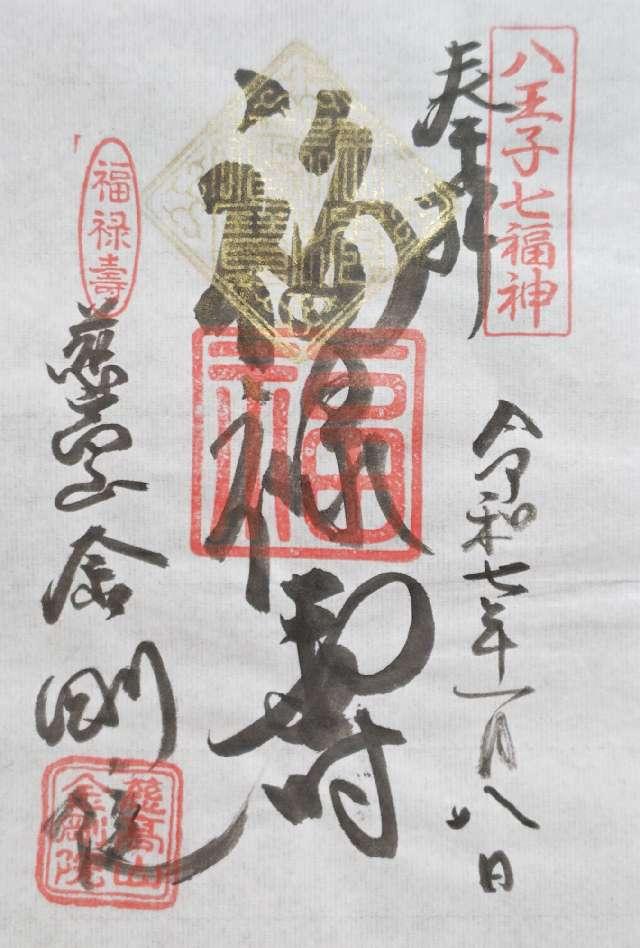 八王子七福神
奉拝
令和七年一月八日
福禄寿
福
福禄壽
慈高山金剛院
慈高山
金剛院